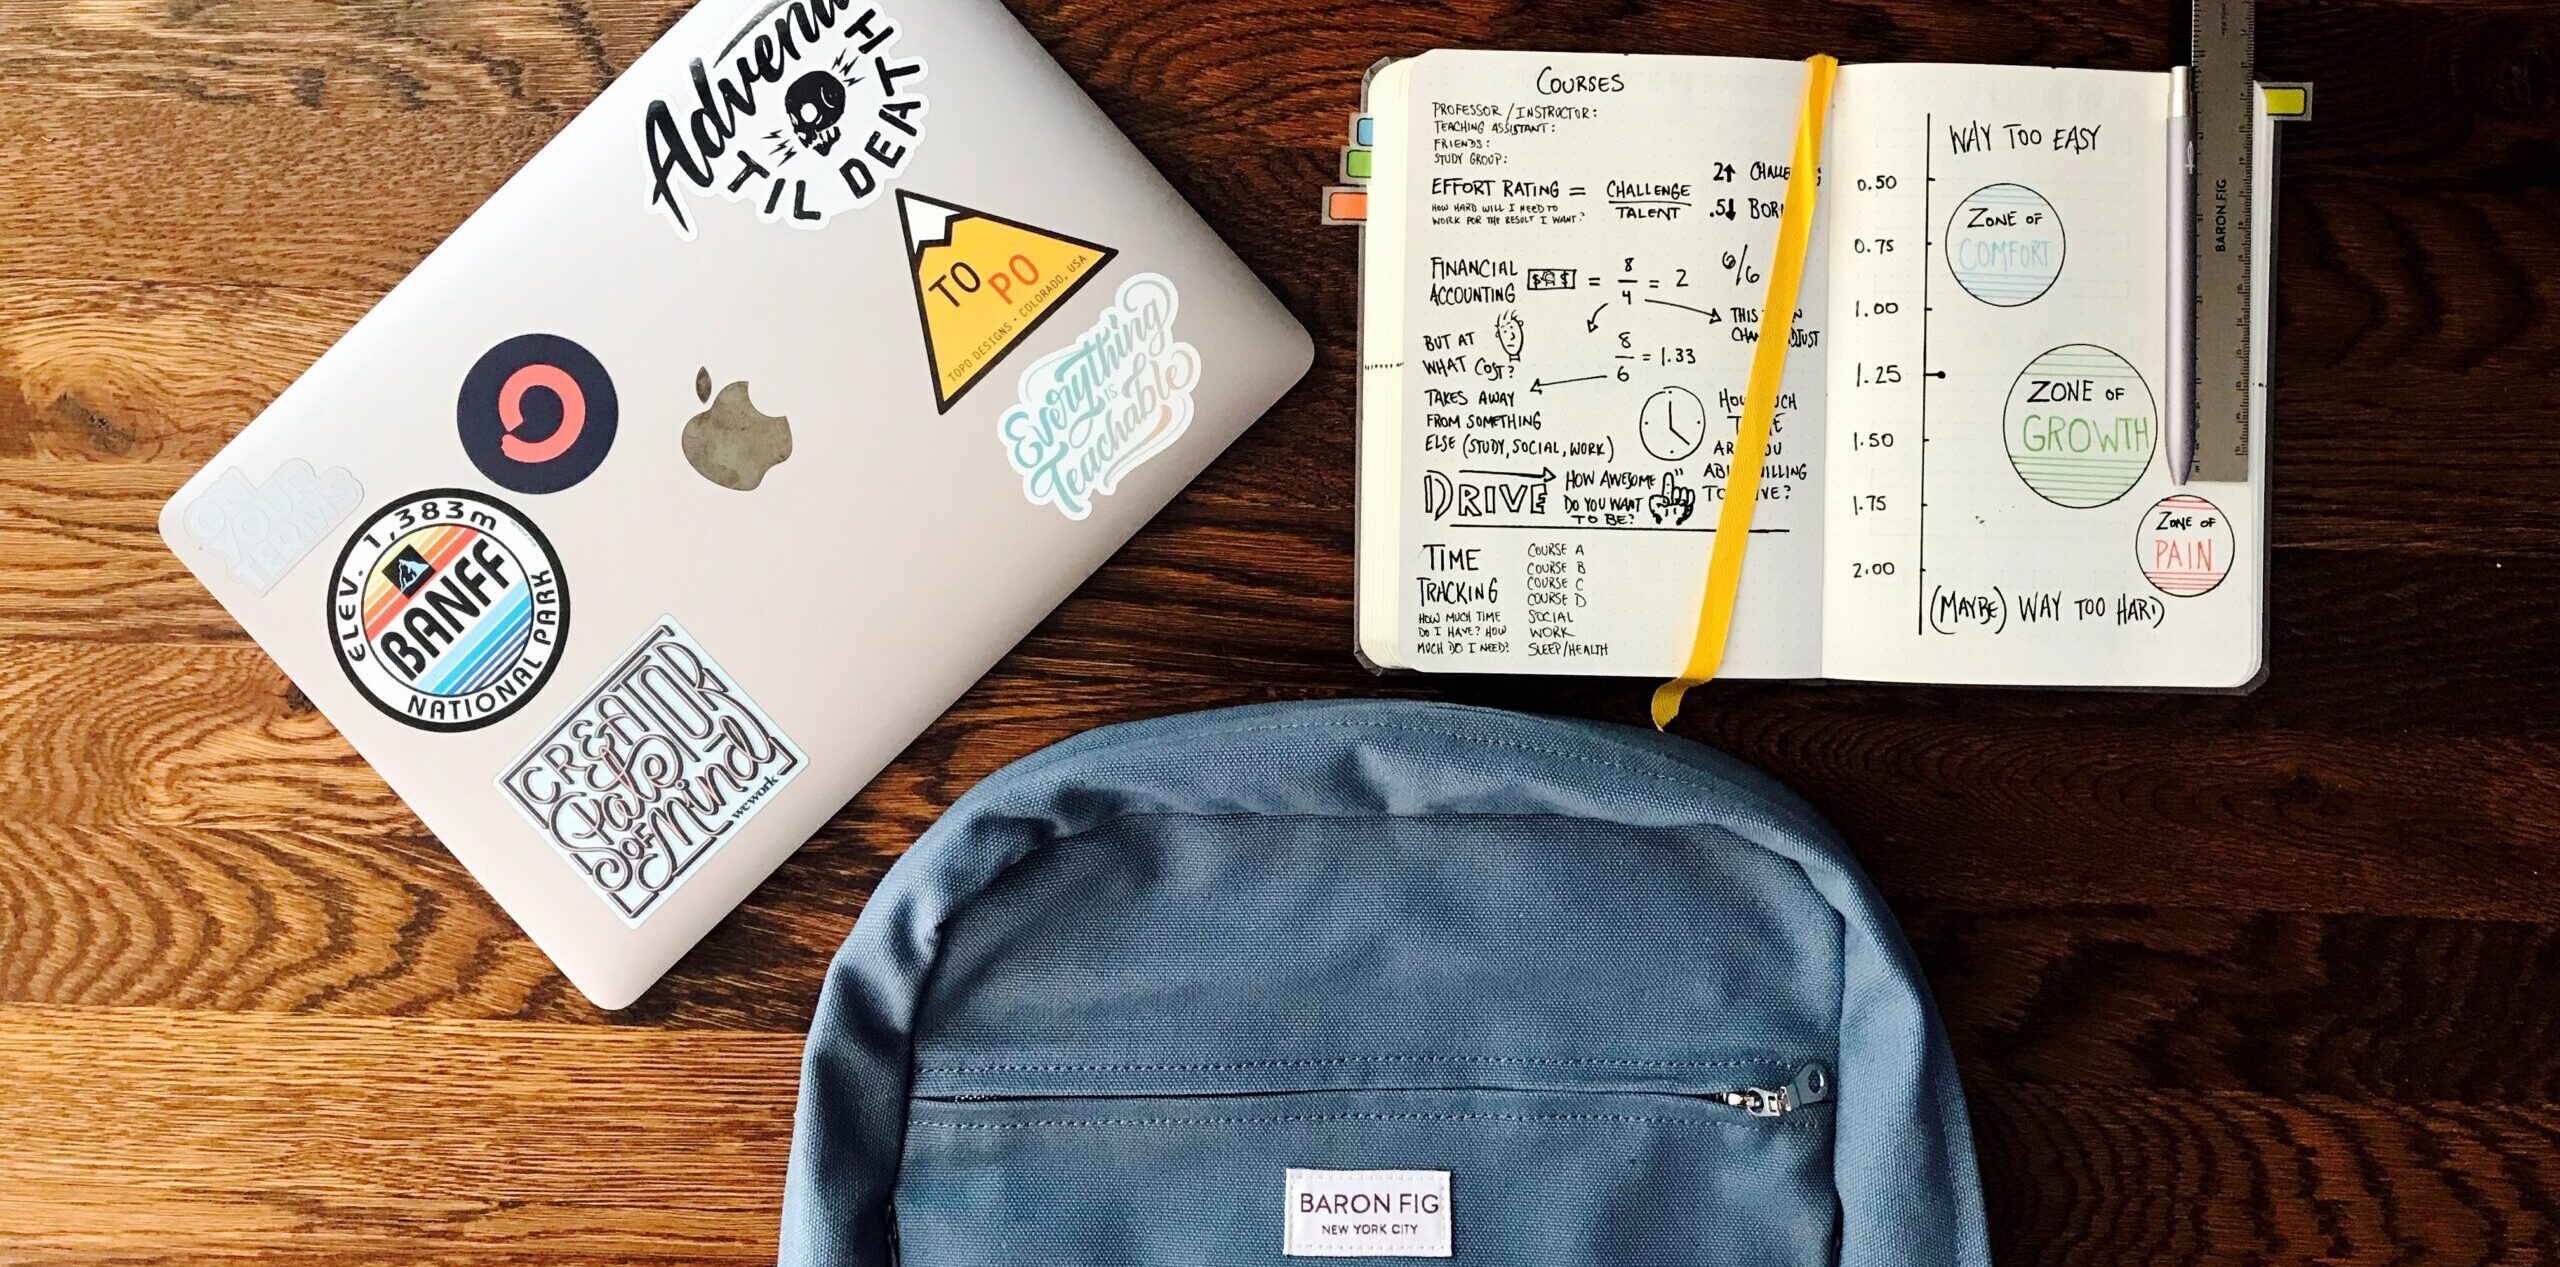 Adventu
TIL DEATH
TO PO
TOPO DESIGNS • COLORADO, USA
Everything
IS
Teachable
ON
YOUR
TERMS
ELEV. 1,383m
BANFF
NATIONAL PARK
CREATOR
State
OF
Mind
wework
COURSES
PROFESSOR/INSTRUCTOR:
TEACHING ASSISTANT:
FRIENDS:
STUDY GROUP:
EFFORT RATING = CHALLENGE
TALENT
HOW HARD WILL I NEED TO
WORK FOR THE RESULT I WANT?
2↑ CHALLE
.5↓ BOR
FINANCIAL
ACCOUNTING
$ $ = 8/4 = 2
6/6
THIS
CHAN ADJUST
BUT AT
WHAT COST?
8/6 = 1.33
TAKES AWAY
FROM SOMETHING
ELSE (STUDY, SOCIAL, WORK)
HO UCH
T E
AR OU
AB ILLING
TO VE?
DRIVE
HOW AWESOME
DO YOU WANT
TO BE?
TIME
TRACKING
HOW MUCH TIME
DO I HAVE? HOW
MUCH DO I NEED?
COURSE A
COURSE B
COURSE C
COURSE D
SOCIAL
WORK
SLEEP/HEALTH
WAY TOO EASY
0.50
ZONE OF
COMFORT
0.75
1.00
1.25
ZONE OF
GROWTH
1.50
1.75
ZONE OF
PAIN
2.00
(MAYBE) WAY TOO HARD
BARON FIG
BARON FIG
NEW YORK CITY